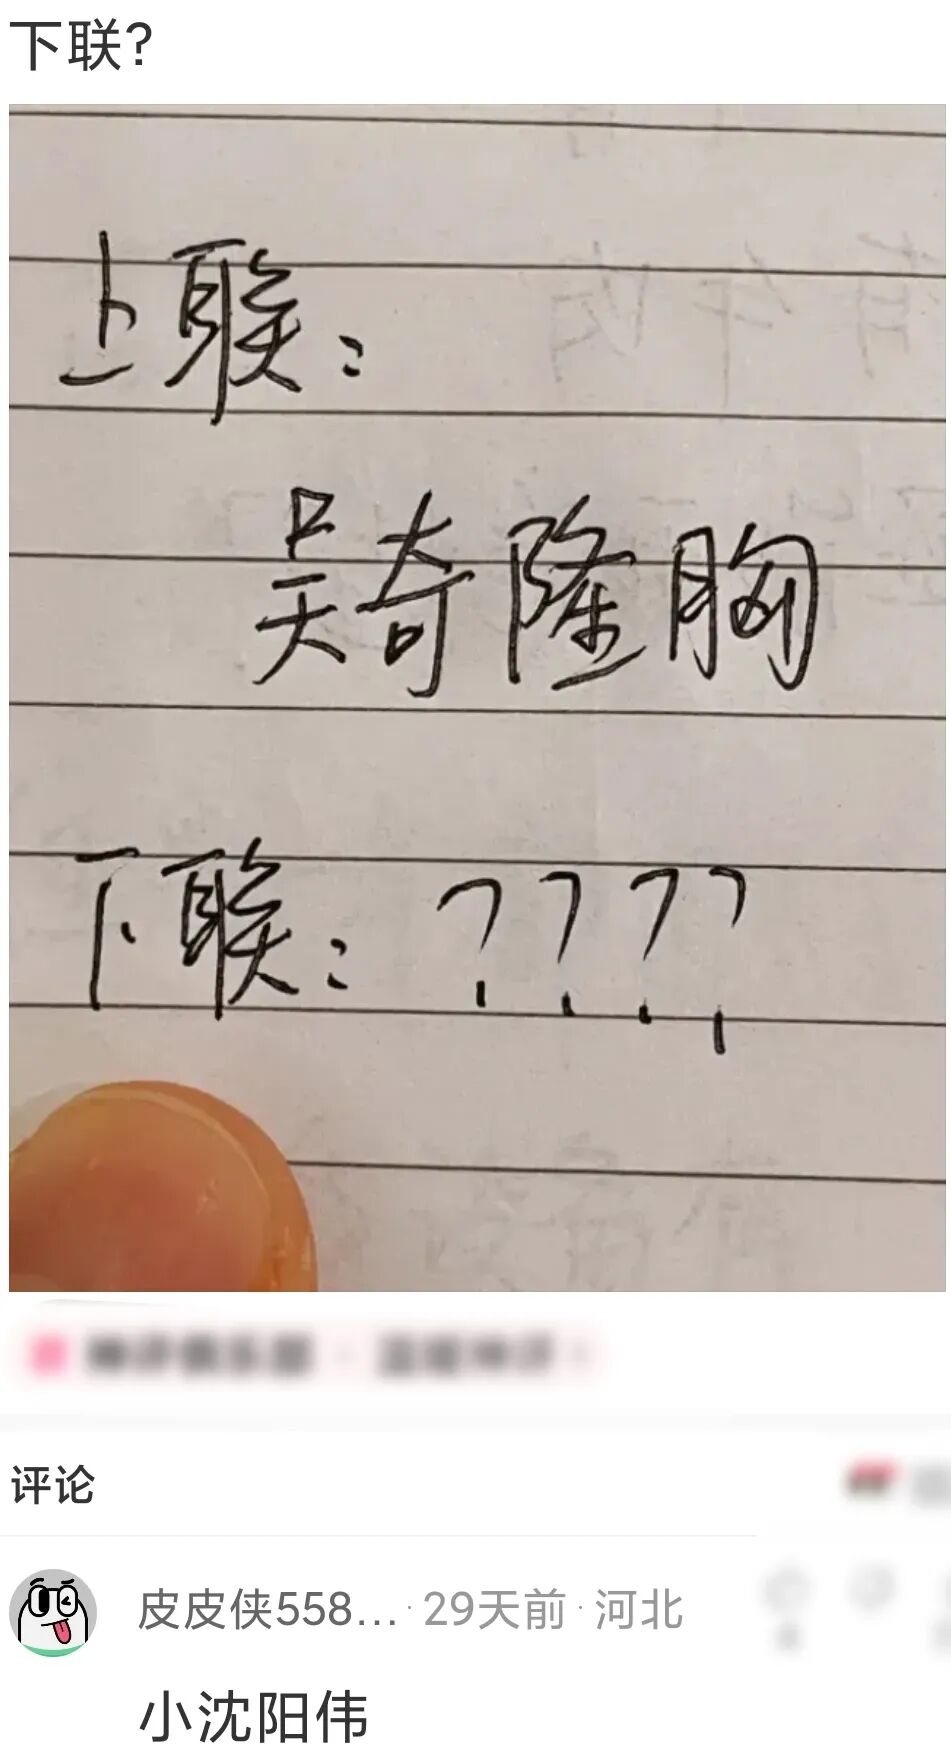 下联?
上联：
吴奇隆胸
下联：????
评论
皮皮侠558...· 29天前 · 河北
小沈阳伟